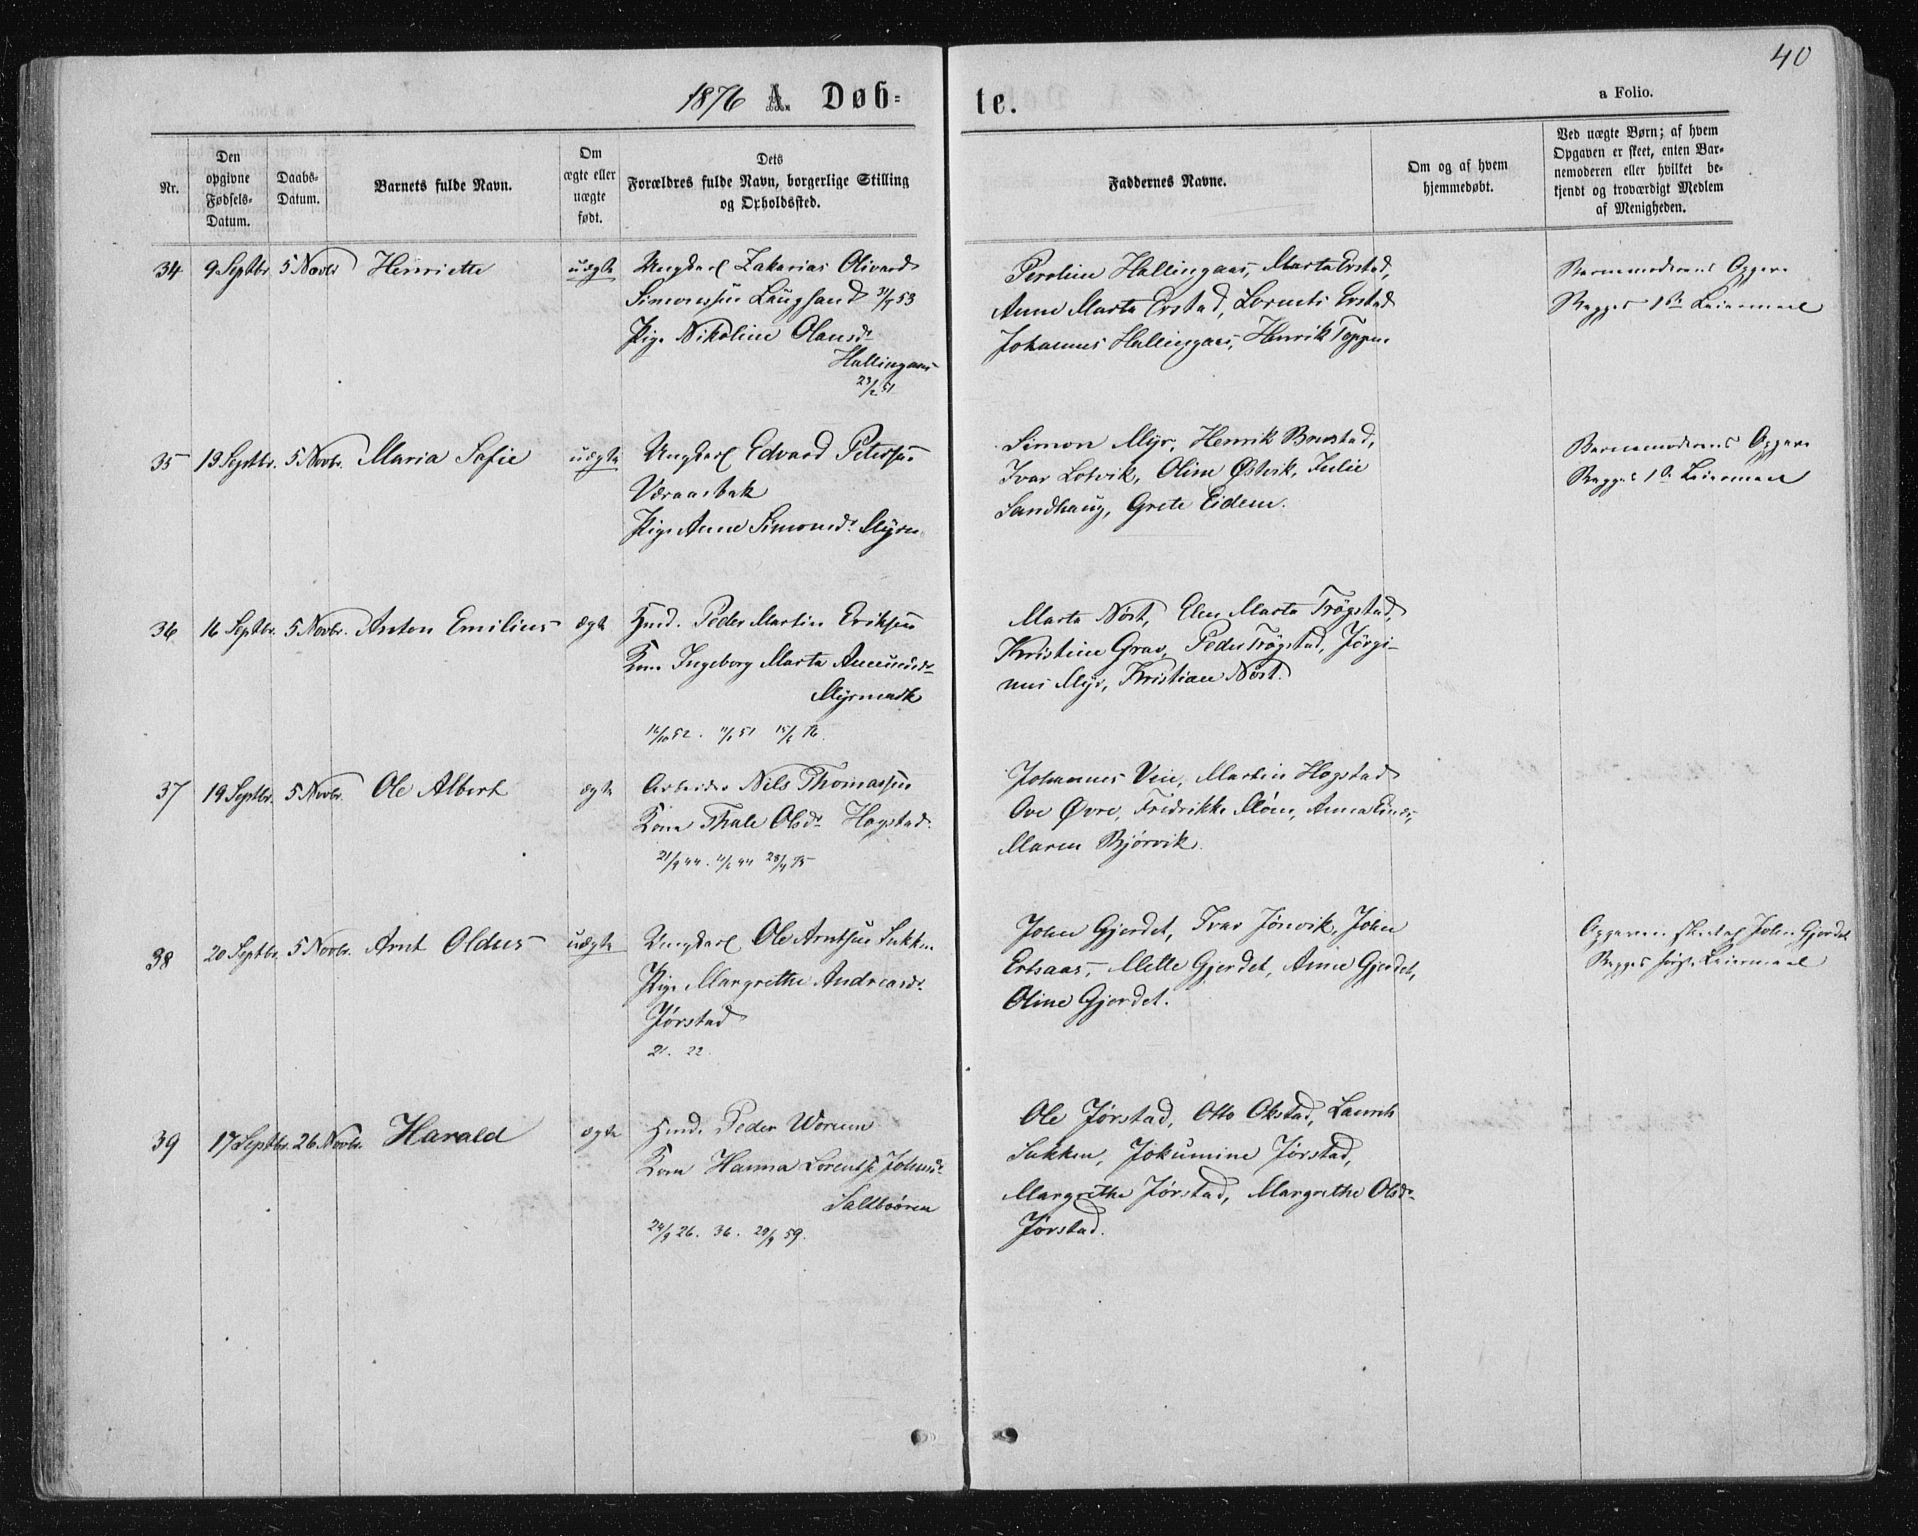 40
1876 A. Døb-
te.
a Folio.
Nr.
Den
opgivne
Fødsels-
Datum.
Daabs-
Datum.
Barnets fulde Navn.
Om
ægte eller
uægte
født.
Dets
Forældres fulde Navn, borgerlige Stilling
og Opholdssted.
Faddernes Navne.
Om og af hvem
hjemmedøbt.
Ved uægte Børn; af hvem
Opgaven er skeet, enten Bar-
nemoderen eller hvilket be-
kjendt og troværdigt Medlem
af Menigheden.
34 9 Septbr 5 Novbr Henriette uægte Ungkarl Zakarias Olivard
Simonssen Laugsand 53
Pige Nikoline Olausd.
Hallingaas
23/2 51
Peroline Hallingaas, Marta Erstad,
Anne Marta Erstad, Lornts Erstad
Johannes Hallingaas, Henrik Toppen
Barnemoderens Opgave
Begges 1ste Leiermaal
35 13 Septbr. 5 Novbr. Maria Sofie uægte Ungkarl Edvard Petersen
Væraasbak
Pige Anne Simonsd. Myren
Simon Myr, Henrik Brustad,
Ivar Lotvik, Oline Østvik, Julie
Sandhaug, Grete Eidem.
Barnemoderens Opgave
Begges 1ste Leiermaal
36 16 Septbr. 5 Novbr. Anton Emilius ægte Hmd. Peder Martin Eriksen
Kone Ingeborg Marta Amundsd.
Myrmark
16/10 52. 51 76.
Marta Nøst, Elen Marta Trøgstad,
Kristine Grav, Peder Trøgstad, Jørgi-
nus Myr, Kristian Nøst.
37 19 Septbr. 5 Novbr. Ole Albert ægte Arbeider Nils Thomassen
Kone Thale Olsd. Hogstad.
21/9 44. 44 75
Johannes Vue, Martin Hogstad
Ove Øvre, Fredrikke Moen, Anna
Maren Bjørvik.
38 20 Septbr. 5 Novbr. Arnt Oldus uægte Ungkarl Ole Arntsen Sukken
Pige Margrethe Andreasd.
Jørstad
21. 22.
John Gjerdet, Ivar Jønvik, John
Ertsaas, Mette Gjerdet, Anne Gjerdet,
Oline Gjerdet.
Opgaven skeet af John Gjerdet
Begges første Leiermaal
39 17 Septbr. 26 Novbr. Harald ægte Hmd. Peder Worum
Kone Hanna Lorentse Johnsd.
Saltbøren
24/9 26. 36. 59.
Ole Jørstad, Otto Okstad, Laurits
Sukken, Jokumine Jørstad,
Margrethe Jørstad, Margrethe Olsd.
Jørstad.